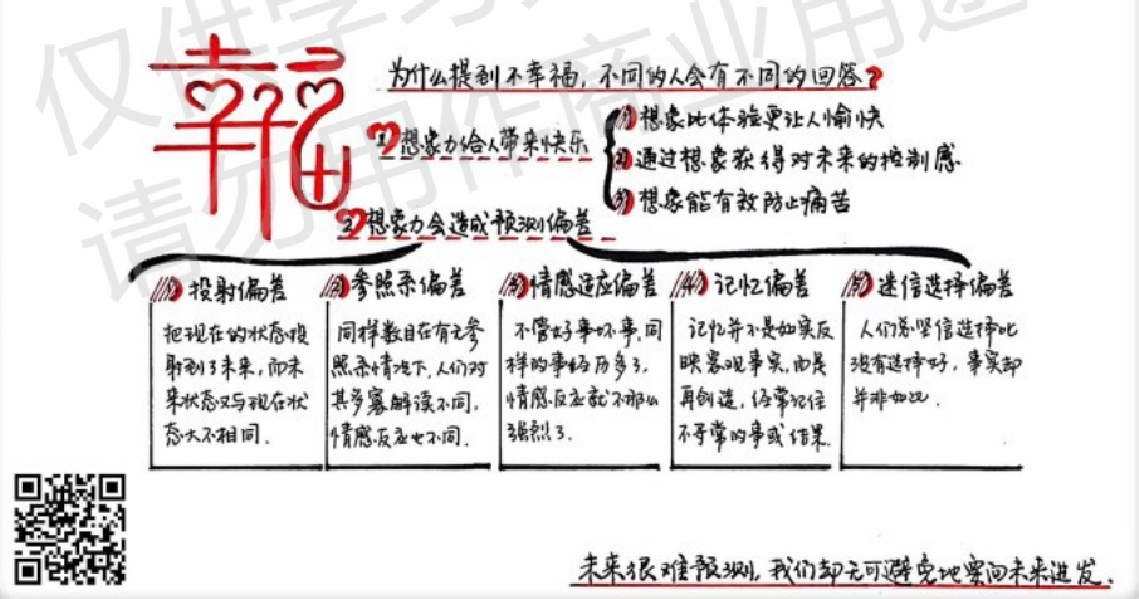 仅供学习
请勿用作商业用途
幸福
为什么提到不幸福,不同的人会有不同的回答?
1 想象力给人带来快乐
1) 想象比体验更让人愉快
2) 通过想象获得对未来的控制感
3) 想象能有效防止痛苦
2 想象力会造成预测偏差
(1) 投射偏差
把现在的状态投
射到了未来,而未
来状态又与现在状
态大不相同.
(2) 参照系偏差
同样数目在有无参
照系情况下,人们对
其多寡解读不同,
情感反应也不同.
(3) 情感适应偏差
不管好事坏事,同
样的事经历多了,
情感反应就不那么
强烈了.
(4) 记忆偏差
记忆并不是如实反
映客观事实,而是
再创造,经常记住
不寻常的事或结果.
(5) 迷信选择偏差
人们总坚信选择比
没有选择好,事实却
并非如此.
未来很难预测,我们却无可避免地要向未来进发.